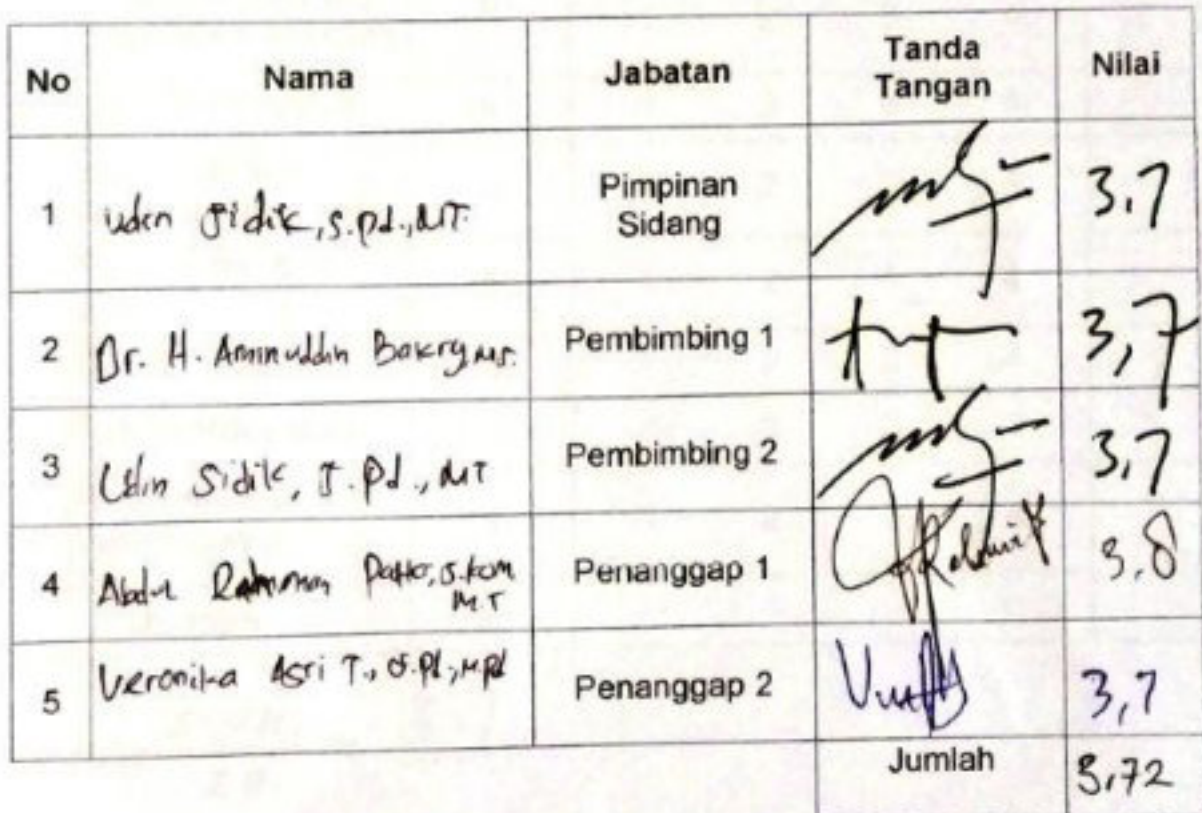 No Nama Jabatan Tanda Tangan Nilai
1 Udin Sidik, S.Pd., MT. Pimpinan Sidang 3,7
2 Dr. H. Aminuddin Bakry, MS. Pembimbing 1 3,7
3 Udin Sidik, S.Pd., MT Pembimbing 2 3,7
4 Abdul Rahman Patta, S.Kom M.T Penanggap 1 3,8
5 Veronika Asri T., S.Pd., M.Pd Penanggap 2 3,7
Jumlah 3,72